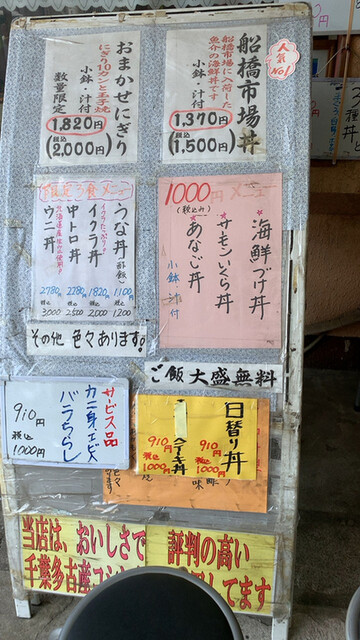 人気No.1
船橋市場丼
船橋市場に入荷した
魚介の海鮮丼です
小鉢・汁付
1,370円
税込
(1,500円)
おまかせにぎり
にぎり10カンと玉子焼
小鉢・汁付
数量限定
1,820円
税込
(2,000円)
1000円メニュー
(税込み)
*海鮮づけ丼
*サーモンいくら丼
*あなご丼
小鉢 汁付
限定3食メニュー
うな丼(酢飯)
1100円
税込
1200
イクラ丼
1820円
税込
2,000
中トロ丼
2280円
税込
2500
ウニ丼
2780円
税込
3000
その他 色々あります。
ご飯大盛無料
サービス品
カニ身、エビ、
バラちらし
910円
税込
1000円
日替り丼
910円
税込
1000円
ステーキ丼
910円
税込
1000円
当店は、おいしさで 評判の高い
千葉多古産コシ してます